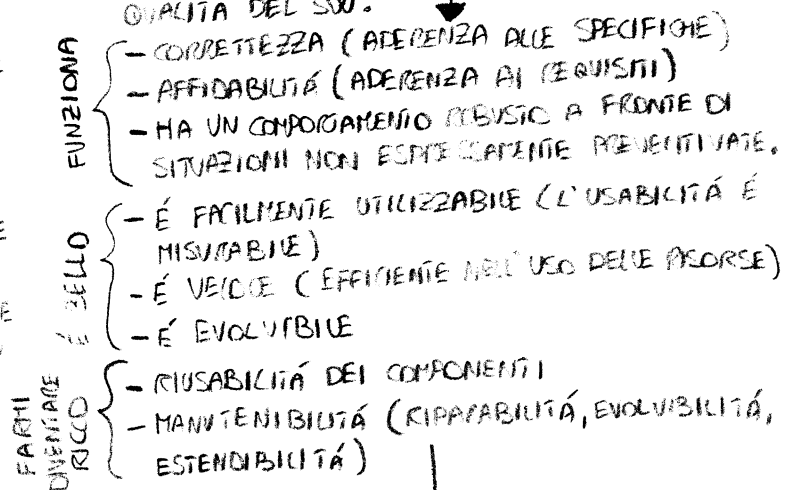 QUALITÀ DEL SW.
FUNZIONA
- CORRETTEZZA (ADERENZA ALLE SPECIFICHE)
- AFFIDABILITÁ (ADERENZA AI REQUISITI)
- HA UN COMPORTAMENTO ROBUSTO A FRONTE DI
SITUAZIONI NON ESPRESSAMENTE PREVENTIVATE.
É BELLO
- É FACILMENTE UTILIZZABILE (L'USABILITÁ É
MISURABILE)
- É VELOCE (EFFICIENTE NELL'USO DELLE RISORSE)
- É EVOLVIBILE
FARMI
DIVENTARE
RICCO
- RIUSABILITÁ DEI COMPONENTI
- MANUTENIBILITÁ (RIPARABILITÁ, EVOLVIBILITÁ,
ESTENDIBILITÁ)